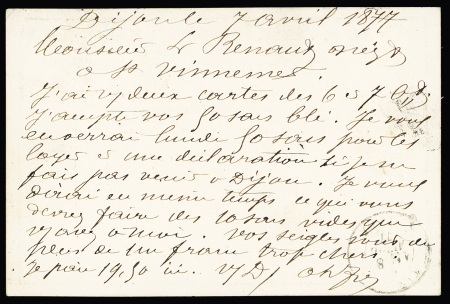 Dijon le 7 avril 1877
Monsieur Renaud négt
à St Vinnemer
J'ai vs deux cartes des 6 et 7 ct
J'accepte vos 50 sacs blé. Je vous
enverrai lundi 50 sacs pour les
loger et une déclaration si je ne
fais pas venir à Dijon. Je vous
dirai en même temps ce que vous
devrez faire des 10 sacs vides que
vs avez à moi. Vos seigles sont de
plus de un franc trop chers
Je paie 19,50 ici.